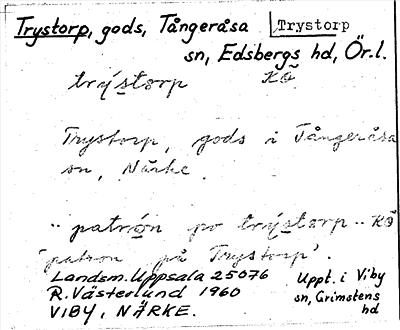 Trystorp, gods, Tångeråsa
Trystorp
sn, Edsbergs hd, Ör.l.
trýstorp Kö
Trystorp, gods i Tångeråsa
sn, Närke.
.. patrón po trýstorp .. Kö
'patron på Trystorp'.
Landsm. Uppsala 25076
R. Västerlund 1960
VIBY, NÄRKE.
Uppt. i Viby
sn, Grimstens
hd